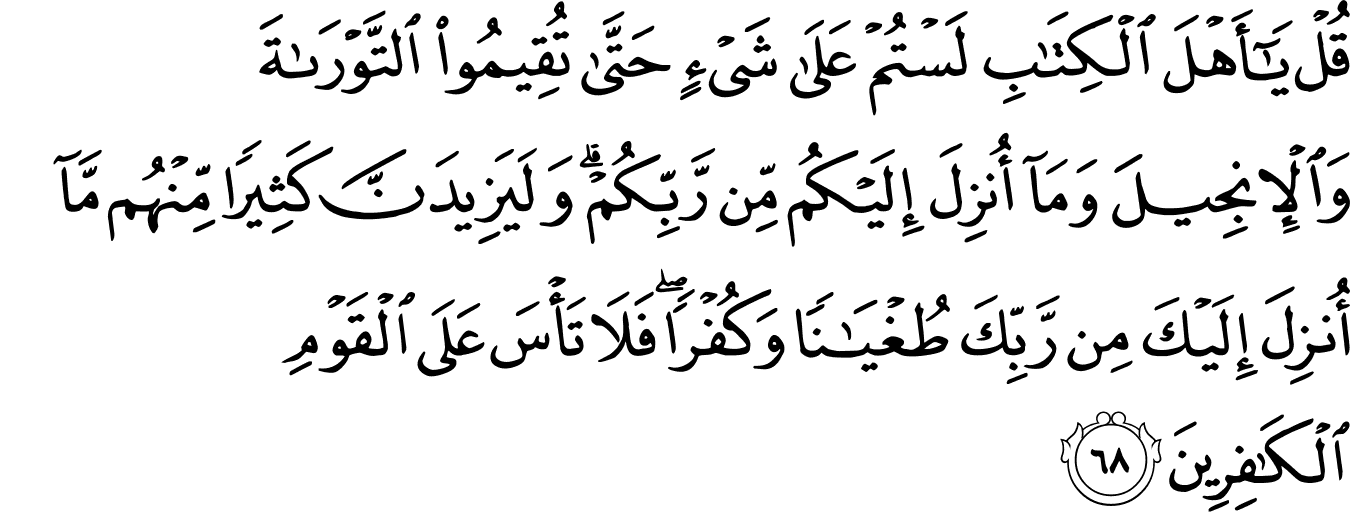 قُلْ يَٰٓأَهْلَ ٱلْكِتَٰبِ لَسْتُمْ عَلَىٰ شَىْءٍ حَتَّىٰ تُقِيمُوا۟ ٱلتَّوْرَىٰةَ
وَٱلْإِنجِيلَ وَمَآ أُنزِلَ إِلَيْكُم مِّن رَّبِّكُمْ ۗ وَلَيَزِيدَنَّ كَثِيرًا مِّنْهُم مَّآ
أُنزِلَ إِلَيْكَ مِن رَّبِّكَ طُغْيَٰنًا وَكُفْرًا ۖ فَلَا تَأْسَ عَلَى ٱلْقَوْمِ
ٱلْكَٰفِرِينَ ٦٨